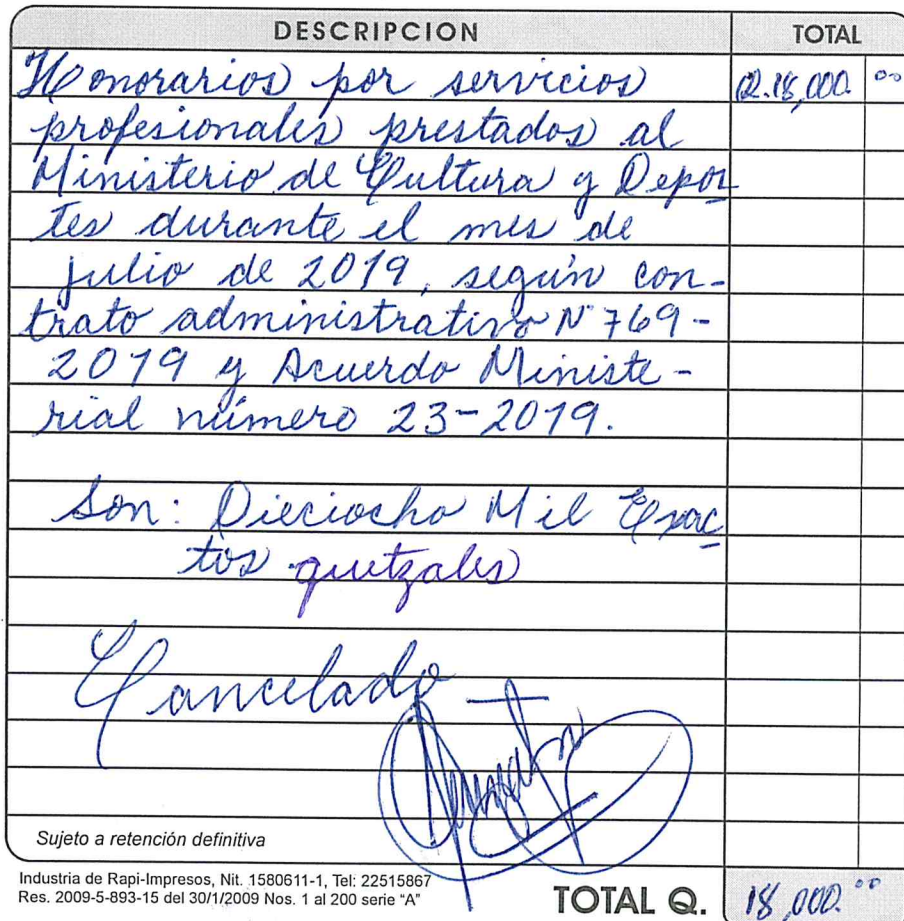 DESCRIPCION TOTAL
Honorarios por servicios Q.18,000. 00
profesionales prestados al
Ministerio de Cultura y Depor
tes durante el mes de
julio de 2019, según con-
trato administrativo N° 769-
2019 y Acuerdo Ministe-
rial número 23-2019.
Son: Dieciocho Mil Exac
tos quetzales
Cancelado
Sujeto a retención definitiva
Industria de Rapi-Impresos, Nit. 1580611-1, Tel: 22515867
Res. 2009-5-893-15 del 30/1/2009 Nos. 1 al 200 serie "A"
TOTAL Q. 18,000. 00